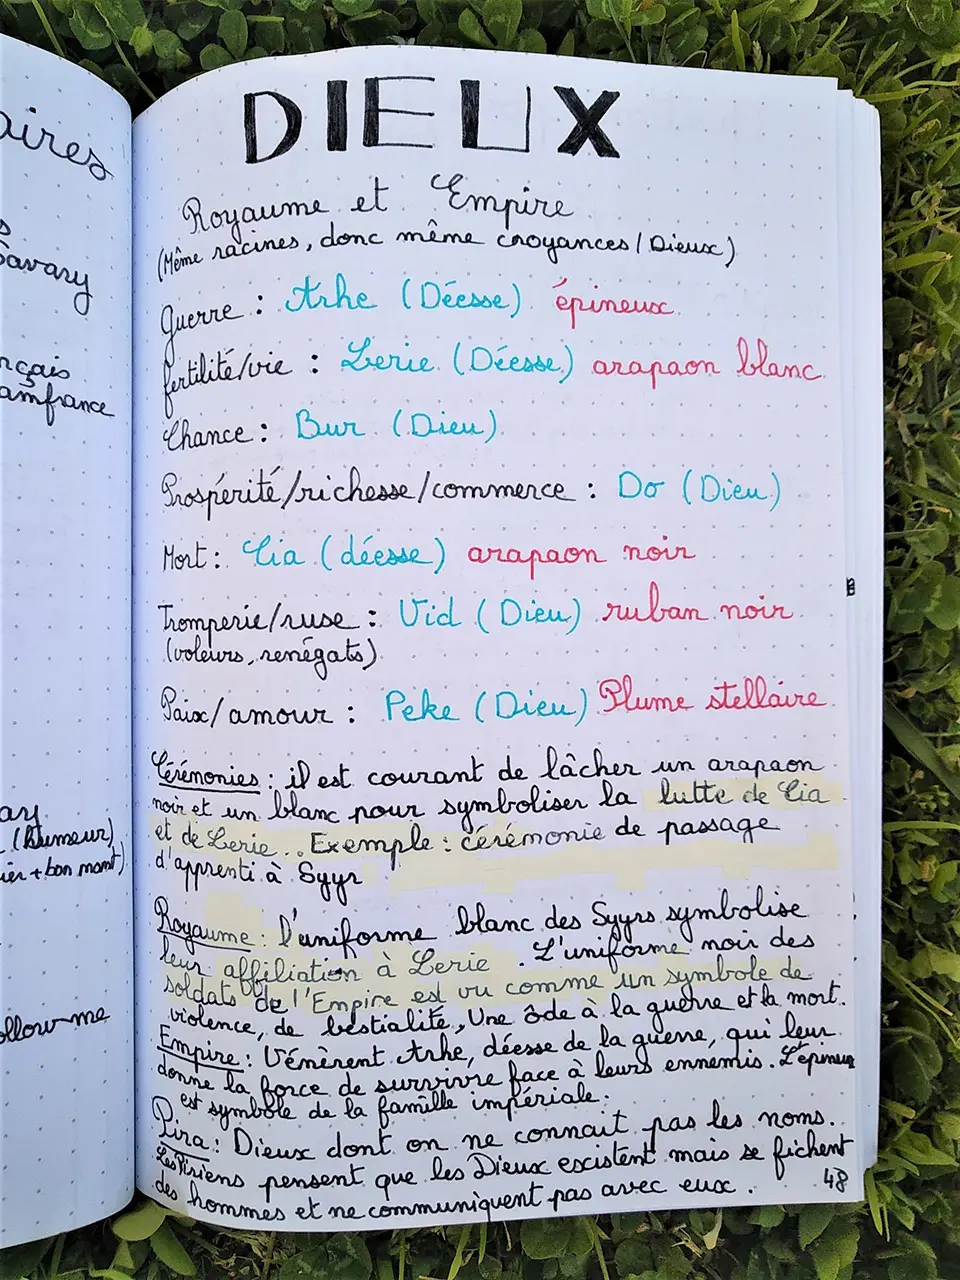 aires
Savary
nçais
amfrance
ay
(humeur)
ier + bon mamt)
ollow-me
DIEUX
Royaume et Empire
(Même racines, donc même croyances / Dieux)
Guerre : Arhe (Déesse) épineux
fertilité/vie : Lerie (Déesse) arapaon blanc
Chance : Bur (Dieu)
Prospérité/richesse/commerce : Do (Dieu)
Mort : Cia (déesse) arapaon noir
Tromperie/ruse : Vid (Dieu) ruban noir
(voleurs, renégats)
Paix/amour : Peke (Dieu) Plume stellaire
Cérémonies : il est courant de lâcher un arapaon
noir et un blanc pour symboliser la lutte de Cia
et de Lerie... Exemple : cérémonie de passage
d'apprenti à Syyr
Royaume : l'uniforme blanc des Syyrs symbolise
leur affiliation à Lerie. L'uniforme noir des
soldats de l'Empire est vu comme un symbole de
violence, de bestialité, Une ôde à la guerre et la mort.
Empire : Vénèrent Arhe, déesse de la guerre, qui leur
donne la force de survivre face à leurs ennemis. L'épineux
est symbole de la famille impériale.
Pira : Dieux dont on ne connait pas les noms.
Les Piriens pensent que les Dieux existent mais se fichent
des hommes et ne communiquent pas avec eux.
48